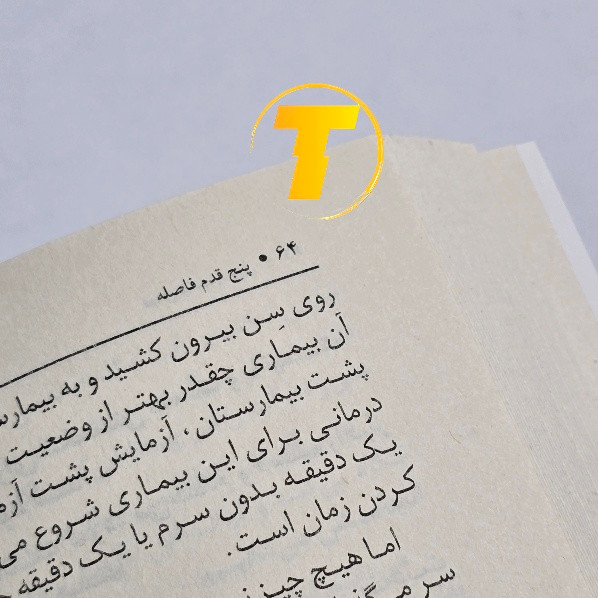 T
۶۴ • پنج قدم فاصله
روی سِن بیرون کشید و به
آن بیماری چقدر بهتر از وضعیت
پشت بیمارستان، آزمایش پشت
درمانی برای این بیماری شروع
یک دقیقه بدون سرم یا یک دقیقه
کردن زمان است.
اما هیچ